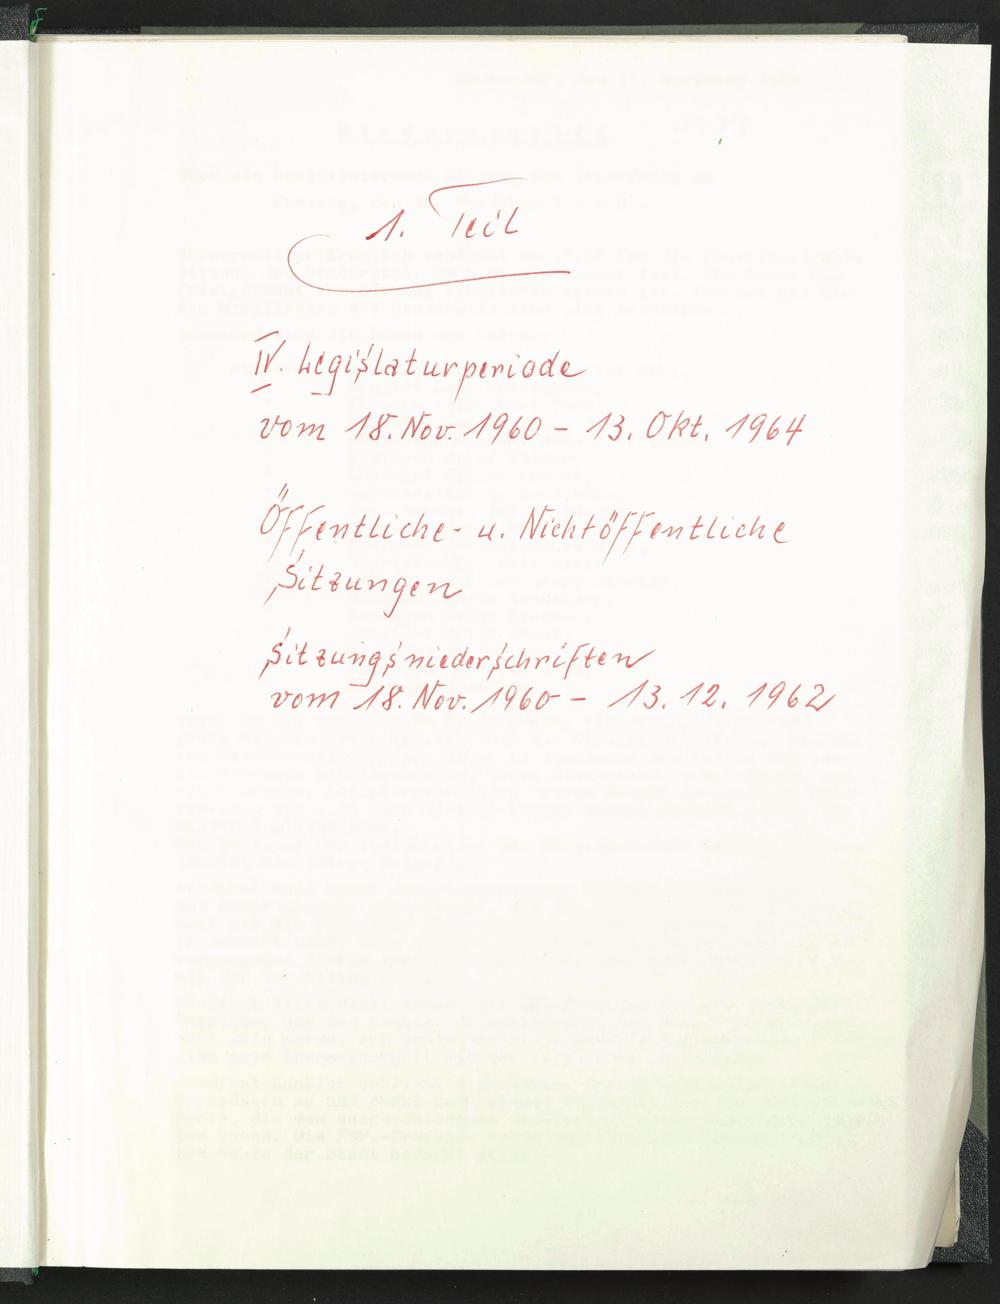 1. Teil
IV. Legislaturperiode
vom 18. Nov. 1960 - 13. Okt. 1964
Öffentliche- u. Nichtöffentliche
Sitzungen
Sitzungsniederschriften
vom 18. Nov. 1960 - 13. 12. 1962